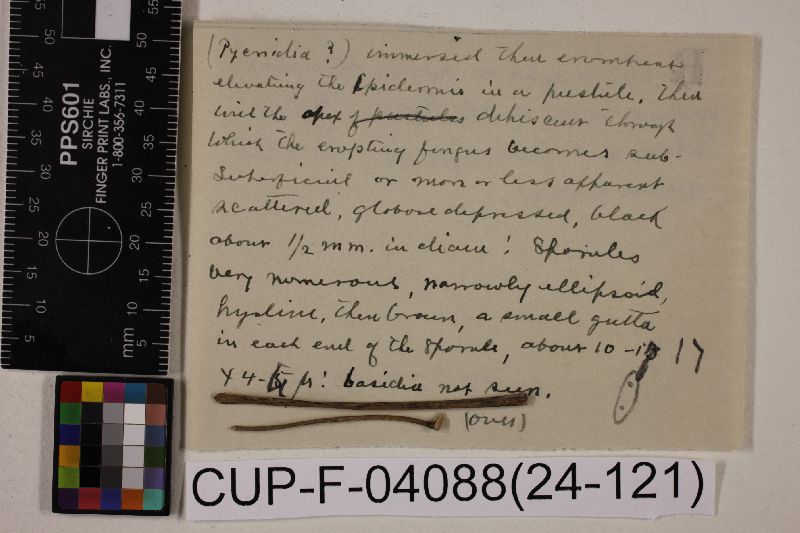 (Pycnidia ?) immersed then erumpent
elevating the Epidermis in a pustule, then
with the apex of pustules dehiscent through
which the erupting fungus becomes sub-
Superficial or more or less apparent
scattered, globose depressed, black
about 1/2 mm. in diam! Sporules
very numerous, narrowly ellipsoid,
hyaline, then brown, a small gutta
in each end of the Sporule, about 10-
17
X 4- µ! basidia not seen.
(over)
CUP-F-04088(24-121)
PPS601
SIRCHIE
FINGER PRINT LABS., INC.
1-800-356-7311
mm
5 10 15 20 25 30 35 40 45 50 55
5 10 15 20 25 30 35 40 45 50